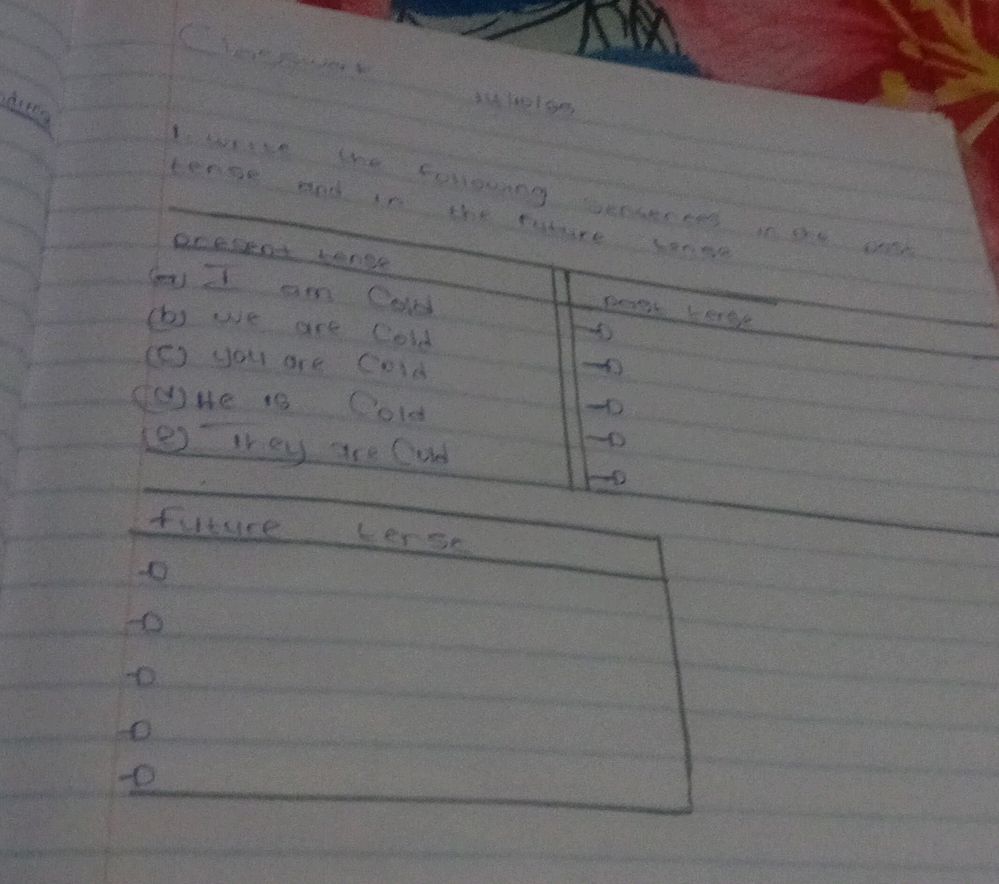 Classwork
1. write the following sentences in the past
tense and in the future tense
present tense
past tense
(a) I am Cold
(b) we are Cold
(c) you are Cold
(d) He is Cold
(e) They are Cold
future tense